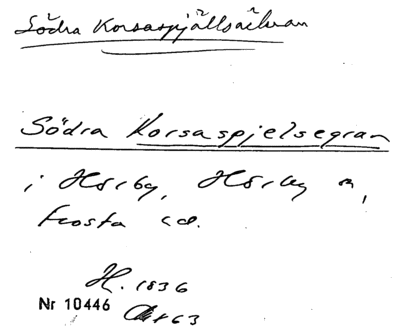 Södra Korsaspjällsåkran
Södra Korsaspjelsegran
i Hörby, Hörby sn,
Frosta hd.
H. 1836
Nr 10446
Akt 63